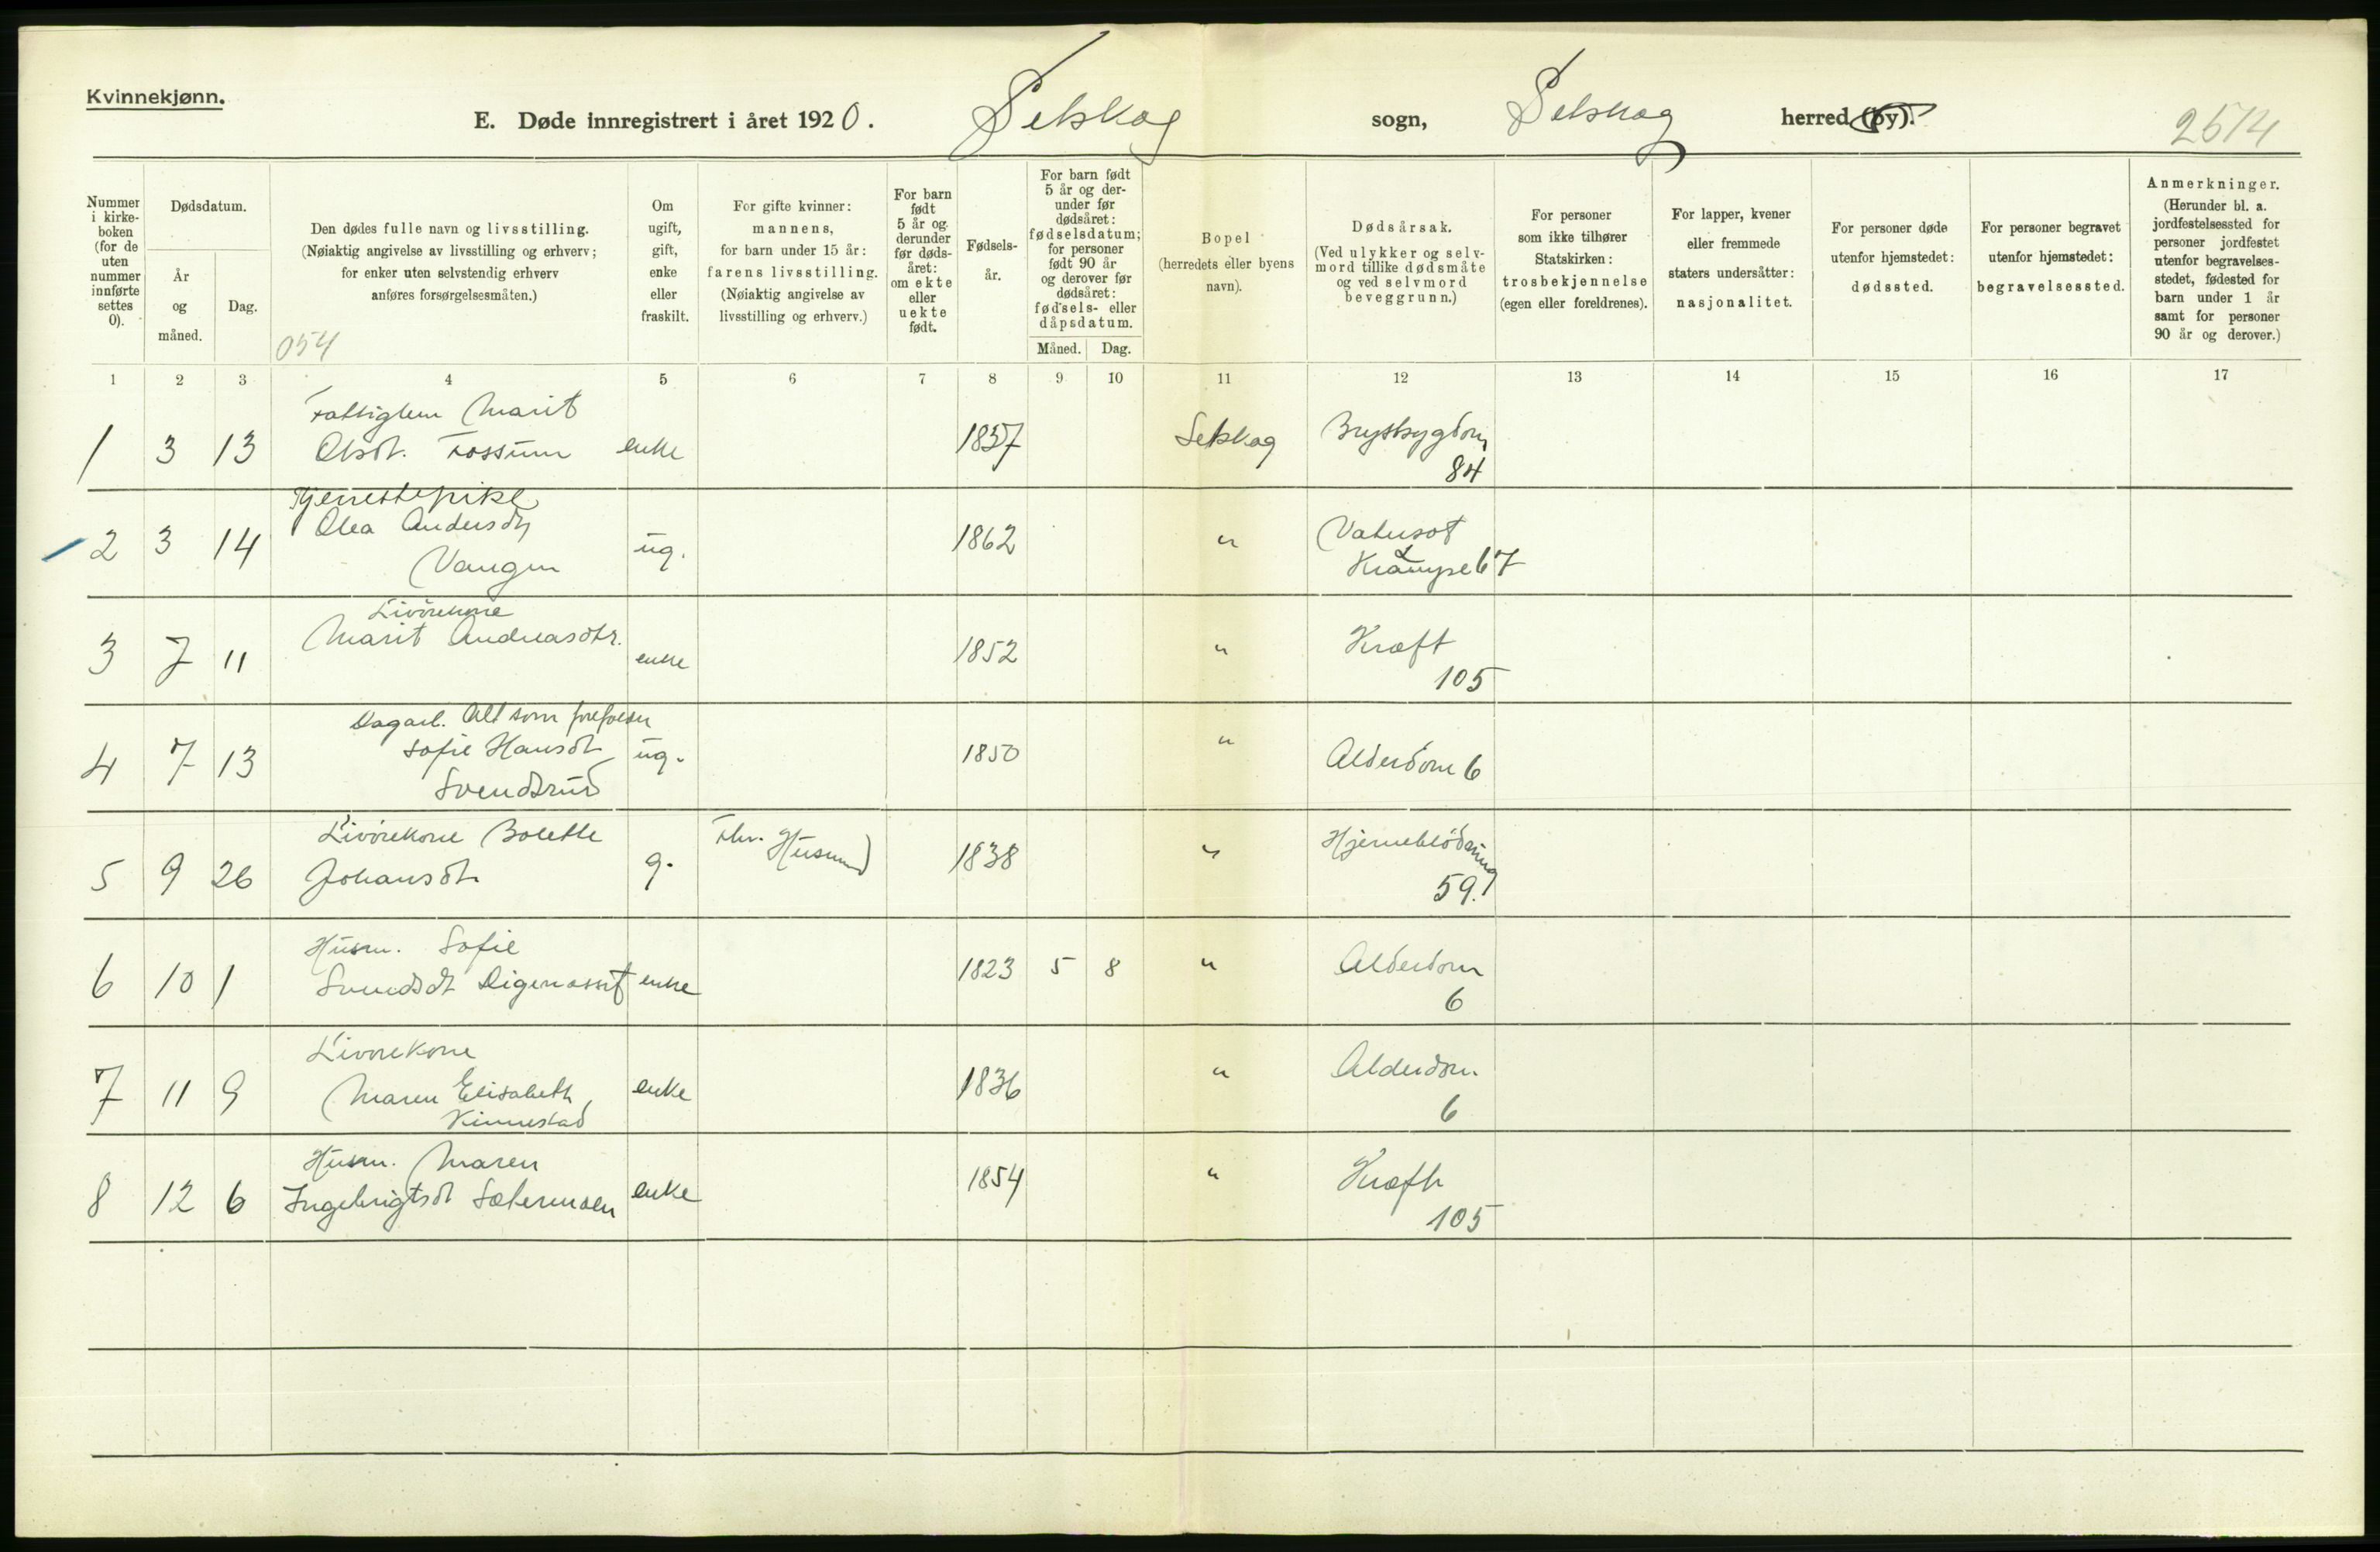 Kvinnekjønn.
E. Døde innregistrert i året 1920. Setskog sogn, Setskog herred (by).
2514
Nummer i kirkeboken (for de uten nummer innførte settes 0).
Dødsdatum.
År og måned.
Dag.
Den dødes fulle navn og livsstilling.
(Nøiaktig angivelse av livsstilling og erhverv;
for enker uten selvstendig erhverv
anføres forsørgelsesmåten.)
054
Om ugift, gift, enke eller fraskilt.
For gifte kvinner:
mannens,
for barn under 15 år:
farens livsstilling.
(Nøiaktig angivelse av
livsstilling og erhverv.)
For barn født 5 år og derunder før dødsåret: om ekte eller uekte født.
Fødselsår.
For barn født 5 år og derunder før dødsåret: fødselsdatum; for personer født 90 år og derover før dødsåret: fødsels- eller dåpsdatum.
Måned. Dag.
Bopel
(herredets eller byens
navn).
Dødsårsak.
(Ved ulykker og selvmord tillike dødsmåte og ved selvmord beveggrunn.)
For personer
som ikke tilhører
Statskirken:
trosbekjennelse
(egen eller foreldrenes).
For lapper, kvener
eller fremmede
staters undersåtter:
nasjonalitet.
For personer døde
utenfor hjemstedet:
dødssted.
For personer begravet
utenfor hjemstedet:
begravelsessted.
Anmerkninger.
(Herunder bl. a.
jordfestelsessted for
personer jordfestet
utenfor begravelses-
stedet, fødested for
barn under 1 år
samt for personer
90 år og derover.)
1 2 3 4 5 6 7 8 9 10 11 12 13 14 15 16 17
Fattiglem Marit
1 3 13 Olsdt. Fossum enke 1837 Setskog Brystsygdom
84
Tjenestepike
Olea Andersdtr
2 3 14 Vangen ug. 1862 " Vatersot
Krampe 67
Livørekone
Marit Andreasdtr.
3 7 11 enke 1852 " Kræft
105
Dagarb. Alt som forefalder
Sofie Hansdt
4 7 13 Svendsrud ug. 1850 " Alderdom 6
Livørekone Bolette
5 9 26 Johansdt g. Fhv. Husmand 1838 " Hjerneblødning
59.
Husm. Sofie
6 10 1 Svendsdt enke 1823 5 8 " Alderdom
6
Livørekone
7 11 9 Maren Elisabeth enke 1836 " Alderdom
Kinnestad 6
Husm. Maren
8 12 6 Ingebrigtsdt Sætermoen enke 1854 " Kræft
105